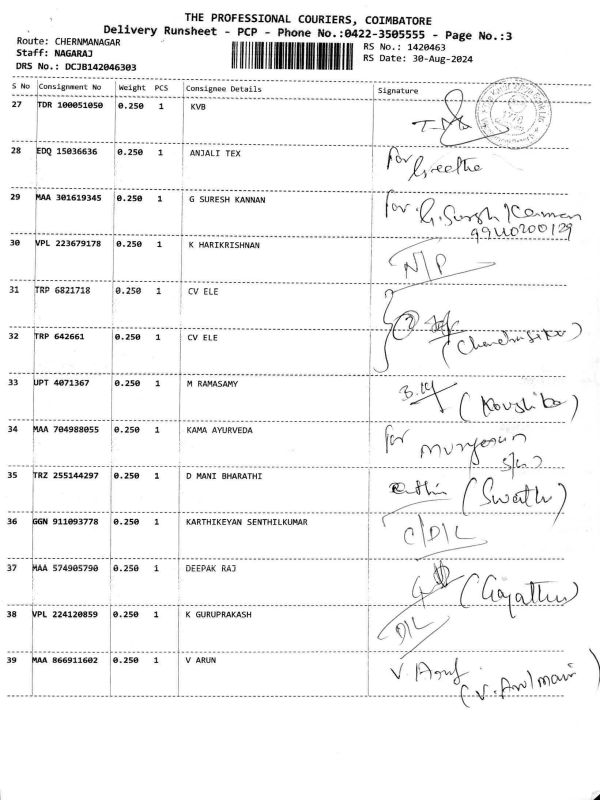 THE PROFESSIONAL COURIERS, COIMBATORE
Delivery Runsheet - PCP - Phone No.:0422-3505555 - Page No.:3
Route: CHERNMANAGAR
RS No.: 1420463
Staff: NAGARAJ
RS Date: 30-Aug-2024
DRS No.: DCJB142046303
S No Consignment No Weight PCS Consignee Details Signature
27 TDR 100051050 0.250 1 KVB
28 EDQ 15036636 0.250 1 ANJALI TEX for Geetha
29 MAA 301619345 0.250 1 G SURESH KANNAN for G. Suresh Kannan
30 VPL 223679178 0.250 1 K HARIKRISHNAN N/P
31 TRP 6821718 0.250 1 CV ELE
32 TRP 642661 0.250 1 CV ELE
33 UPT 4071367 0.250 1 M RAMASAMY (Koushika)
34 MAA 704988055 0.250 1 KAMA AYURVEDA for Murugesan
35 TRZ 255144297 0.250 1 D MANI BHARATHI (Swathi)
36 GGN 911093778 0.250 1 KARTHIKEYAN SENTHILKUMAR C/D/L
37 MAA 574905790 0.250 1 DEEPAK RAJ (Gayathri)
38 VPL 224120859 0.250 1 K GURUPRAKASH D/L
39 MAA 866911602 0.250 1 V ARUN
(V. Arulmani)